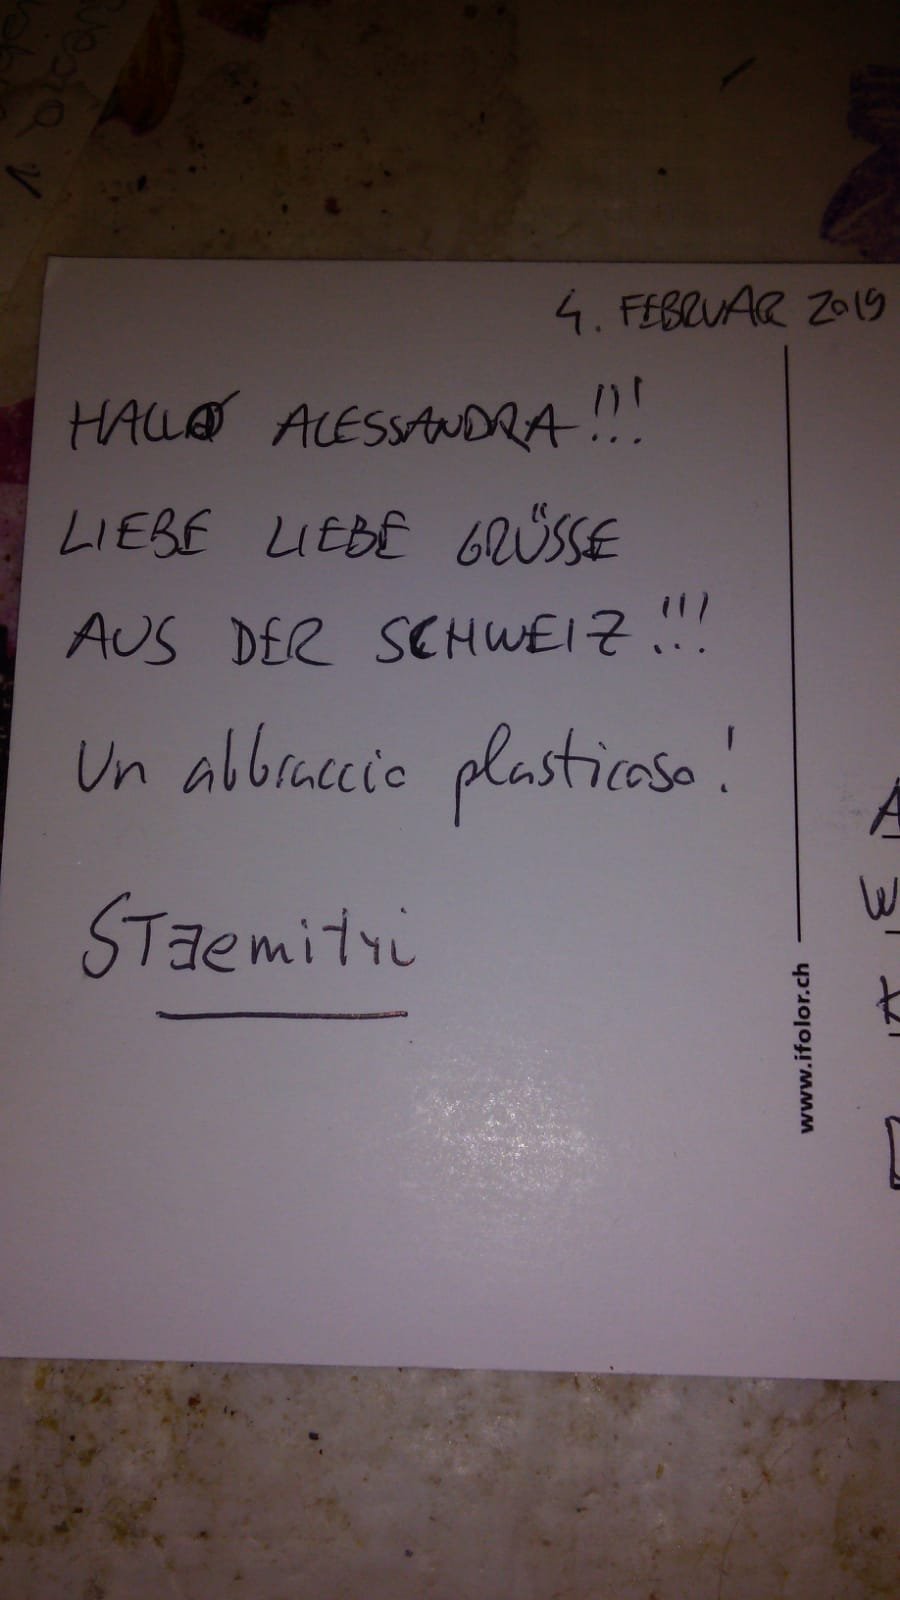 4. FEBRUAR 2019
HALLO ALESSANDRA!!!
LIEBE LIEBE GRÜSSE
AUS DER SCHWEIZ!!!
Un abbraccio plasticoso!
www.ifolor.ch